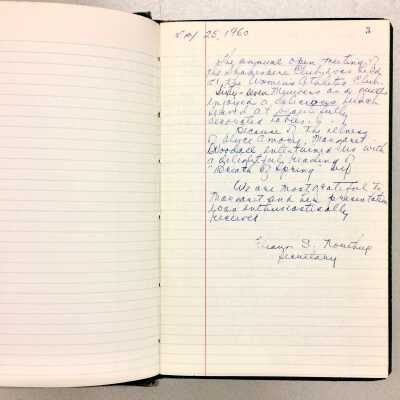 3
May 25, 1960
The annual open meeting of
the Shakespeare Club was held
at the Women's Athletic Club.
Sixty-seven Members and guests
enjoyed a delicious lunch
served at beautifully
decorated tables.
Because of the illness
of Alyce Amory, Margaret
entertained us with
a delightful reading of
"Breath of Spring"
We are most grateful to
Margaret and her presentation
was enthusiastically
received
S.
Secretary